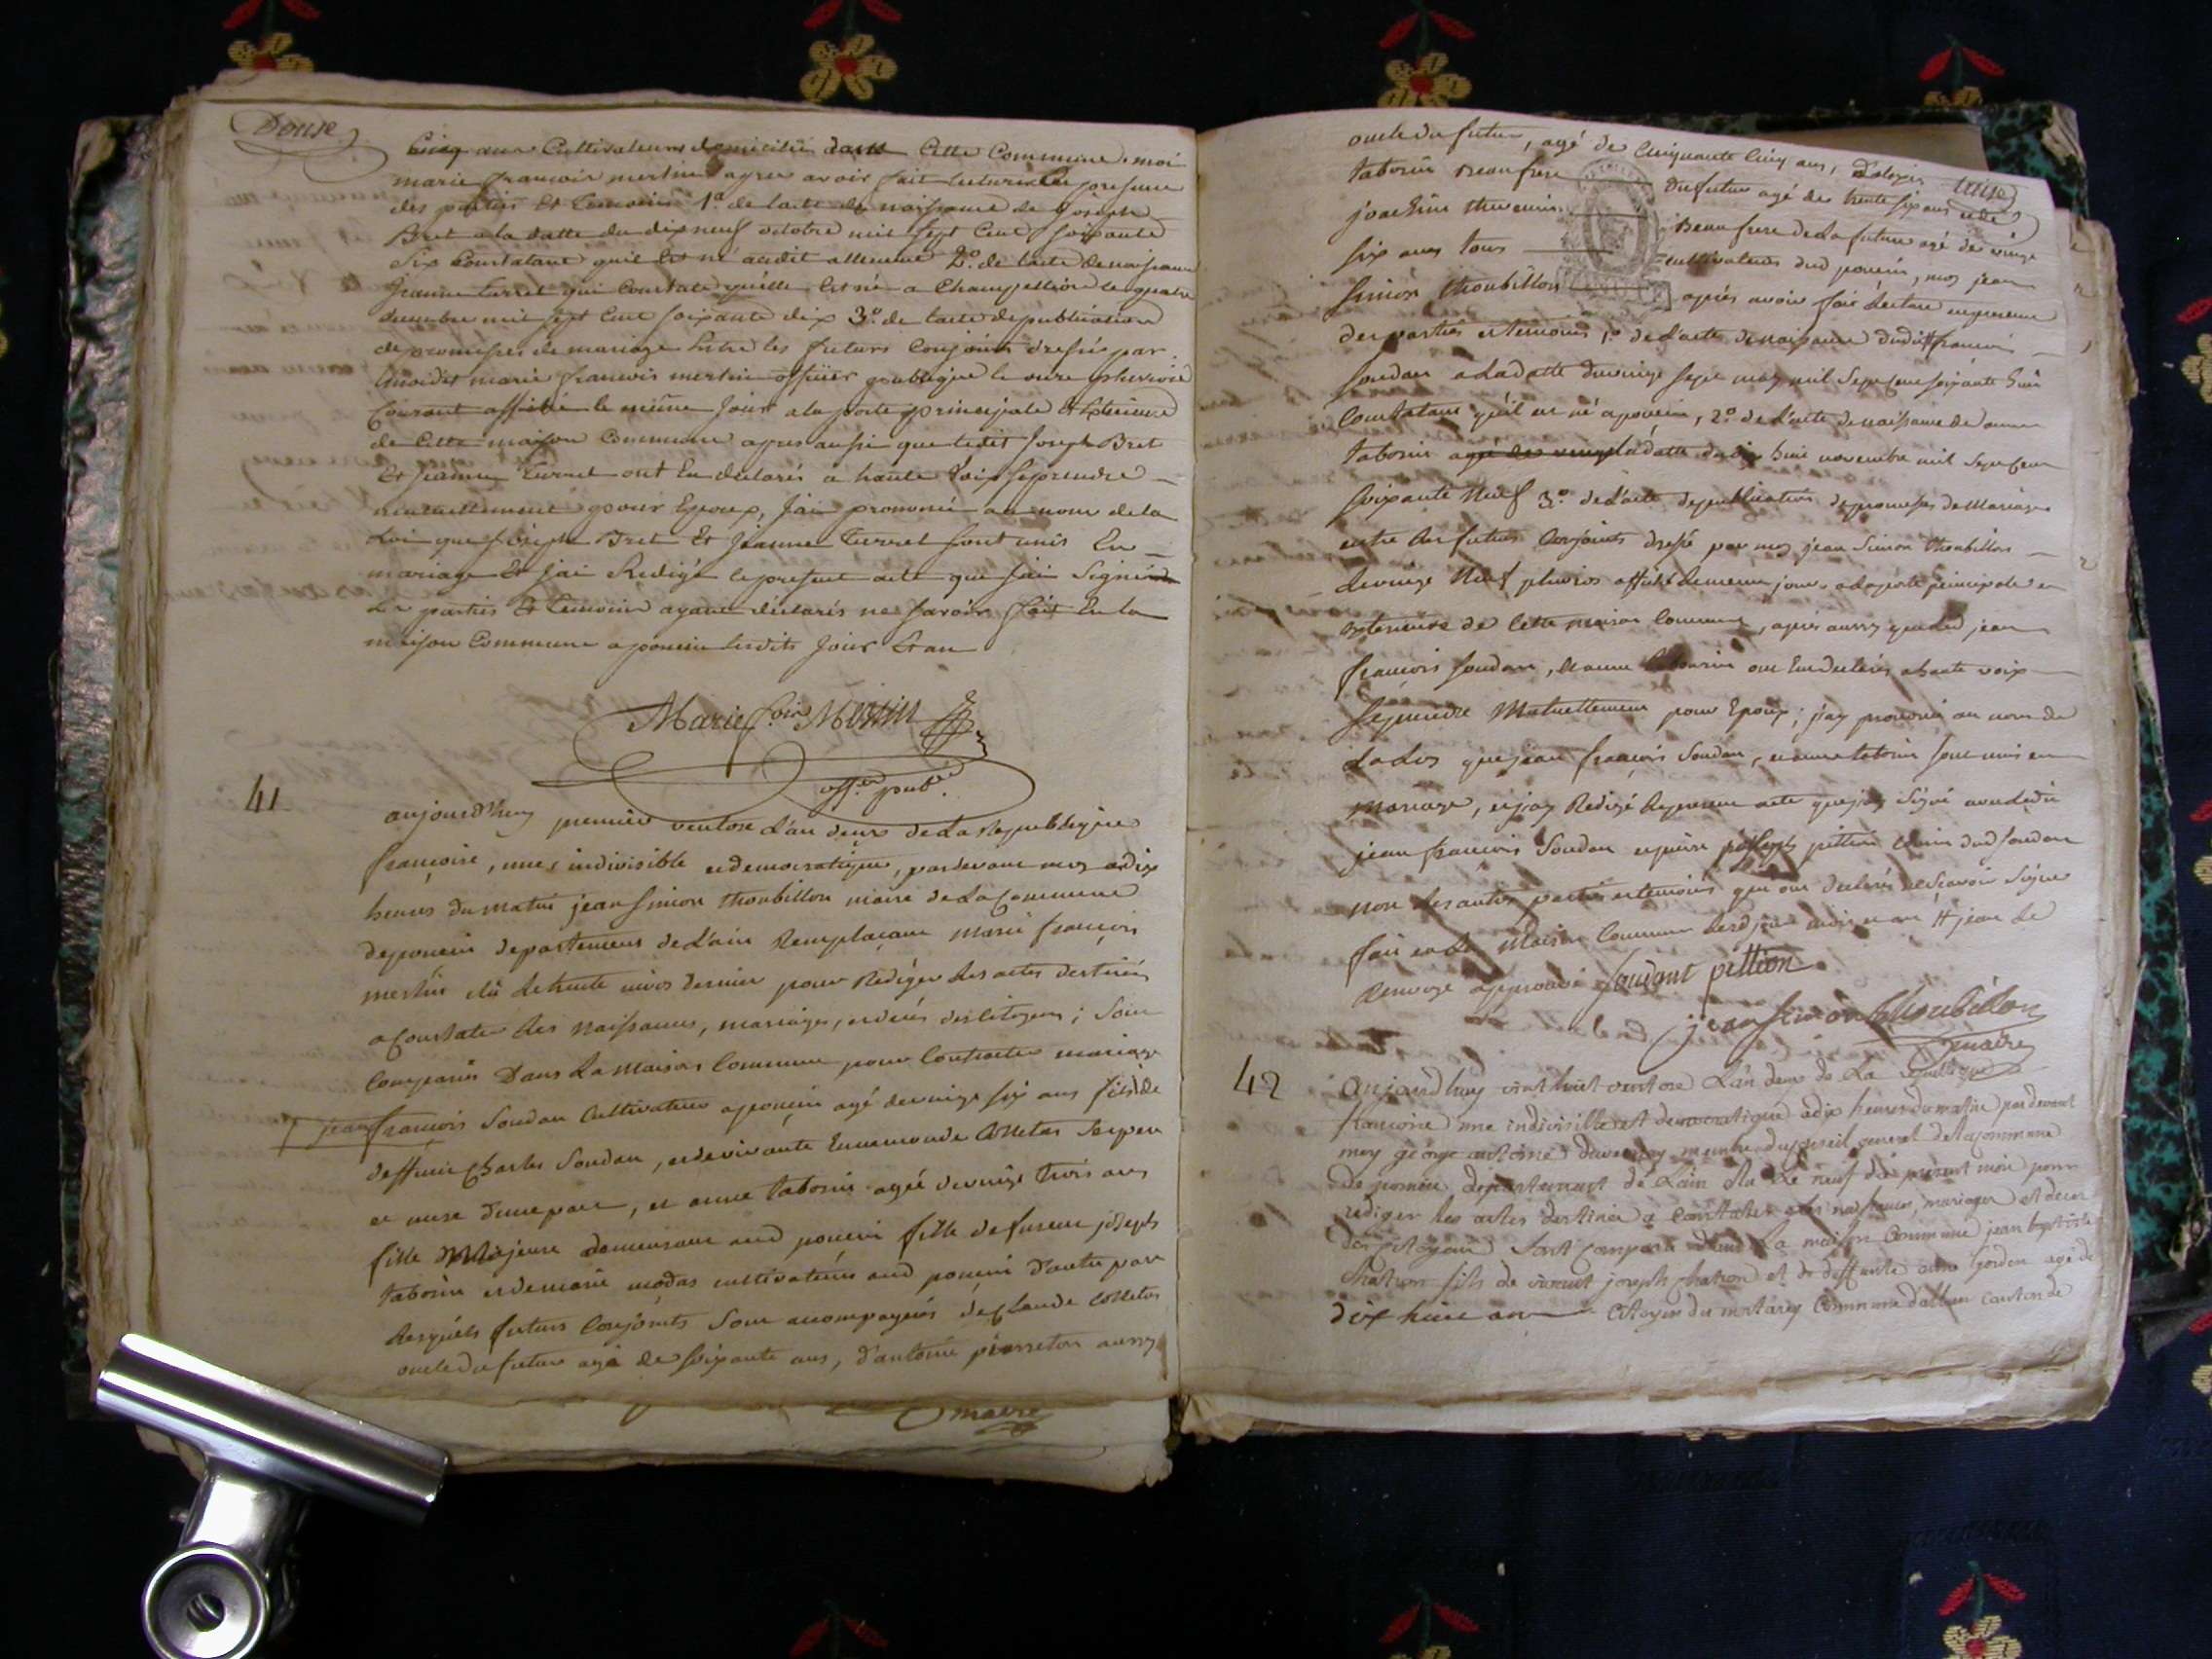 Douse
cinq ans Cultivateurs domicilié dans Cette Commune. moi
marie francois merlin apres avoir fait lecture en presence
des parties Et temoins 1º de lacte de naissance de joseph
Bret a la datte du dix neuf octobre mil sept Cent soixante
Six Constatant quil est né audit 2º de lacte de naissance
jeanne turrel qui Constate quelle est née a Champ le quatre
decembre mil sept Cent soixante dix 3º de lacte de publication
de promesses de mariage Entre les futurs Conjoints dressée par
marie francois merlin officier publique le onze
Courant affiché le même jour a la porte principale Et Exterieure
de Cette maison Commune apres aussi que ledit joseph Bret
Et jeanne turrel ont Eu declarés a haute voix se prendre
mutuellement pour Epoux, jai prononcé au nom de la
Loi que joseph Bret Et jeanne turrel sont unis En
mariage Et jai Redigé le present acte que jai Signé
Les parties Et temoins ayant declarés ne savoir fait En la
maison Commune a poncin lesdits jour Et an
Marie fois Merlin
off.er pub.
41
aujourdhuy premier ventose L'an deux de La Republique
francoise, une, indivisible et democratique, pardevant moy a dix
heures du matin jean Simon thoubillon maire de La Commune
de poncin departement de L'ain Remplaçant marie françois
merlin élu le trente nivos dernier pour Rediger les actes destinés
a Constater les Naissances, mariages, et décés des Citoyens; sont
Comparus Dans La Maison Commune pour Contracter mariage
jean françois Soudan Cultivateur a poncin agé de vingt six ans fils de
deffunt Charles Soudan, et de vivante Ennemonde Colletas Ses pere
et mere d'une part, et anne taborin agée de vingt trois ans
fille Majeure demeurant aud poncin fille de joseph
taborin et de marie modas cultivateurs aud poncin d'autre part
Lesquels futurs Conjoints Sont accompagnés de Claude Colletas
oncle du futur agé de soixante ans, d'antoine pierreton aussy
maire
oncle du futur, agé de Cinquante Cinq ans,
taborin Beaufrere du futur agé de trente six ans et de
joachim thevenin Beau frere de La future agé de vingt
six ans tous cultivateurs dud poncin, moy jean
Simon thoubillon après avoir fait lecture en presence
des parties et temoins, 1º de L'acte de naissance dudit francois
Soudan a La datte du vingt sept may mil Sept Cent soixante huit
Constatant qu'il est né a poncin, 2º de L'acte de naissance de anne
taborin la datte du dix huit novembre mil Sept Cent
soixante Neuf 3º de L'acte de publication de promesses de Mariage
entre les futurs Conjoints dressé par moy jean Simon thoubillon
Le vingt Neuf pluvios affiché le meme jour a La porte principale et
exterieure de Cette maison Commune, après aussy que led jean
françois Soudan, et anne taborin ont Eu declarés a haute voix
Se prendre Mutuellement pour Epoux; j'ay prononcé au nom de
La Loy que jean françois Soudan, et anne taborin sont unis en
Mariage, et j'ay Redigé le present acte que j'ay Signé avec ledit
jean francois Soudan et pierre joseph pittion Cousin dud Soudan
non les autres parties et temoins qui ont declarés ne Scavoir Signer
fait en la Maison Commune Lesd jour mois et an # jean Le
Renvoye approuvé Soudant pittion
jean Simon thoubillon
maire
42
Aujourdhuy vint huit ventose L'an deux de La Republique
francoise une indivisible et democratique a dix heures du matin par devant
moy géorge antoine membre du conseil general de la commune
de poncin departement de Lain élu Le neuf du présent mois pour
rediger les actes destinés a Constater les naissances, mariages et deces
des Citoyens Sont Comparu dans La maison Commune jean baptiste
Chatron fils de vivant joseph Chatron et de deffunte anne agé de
dix huit ans Citoyen du mortarey Commune d'allan Canton de